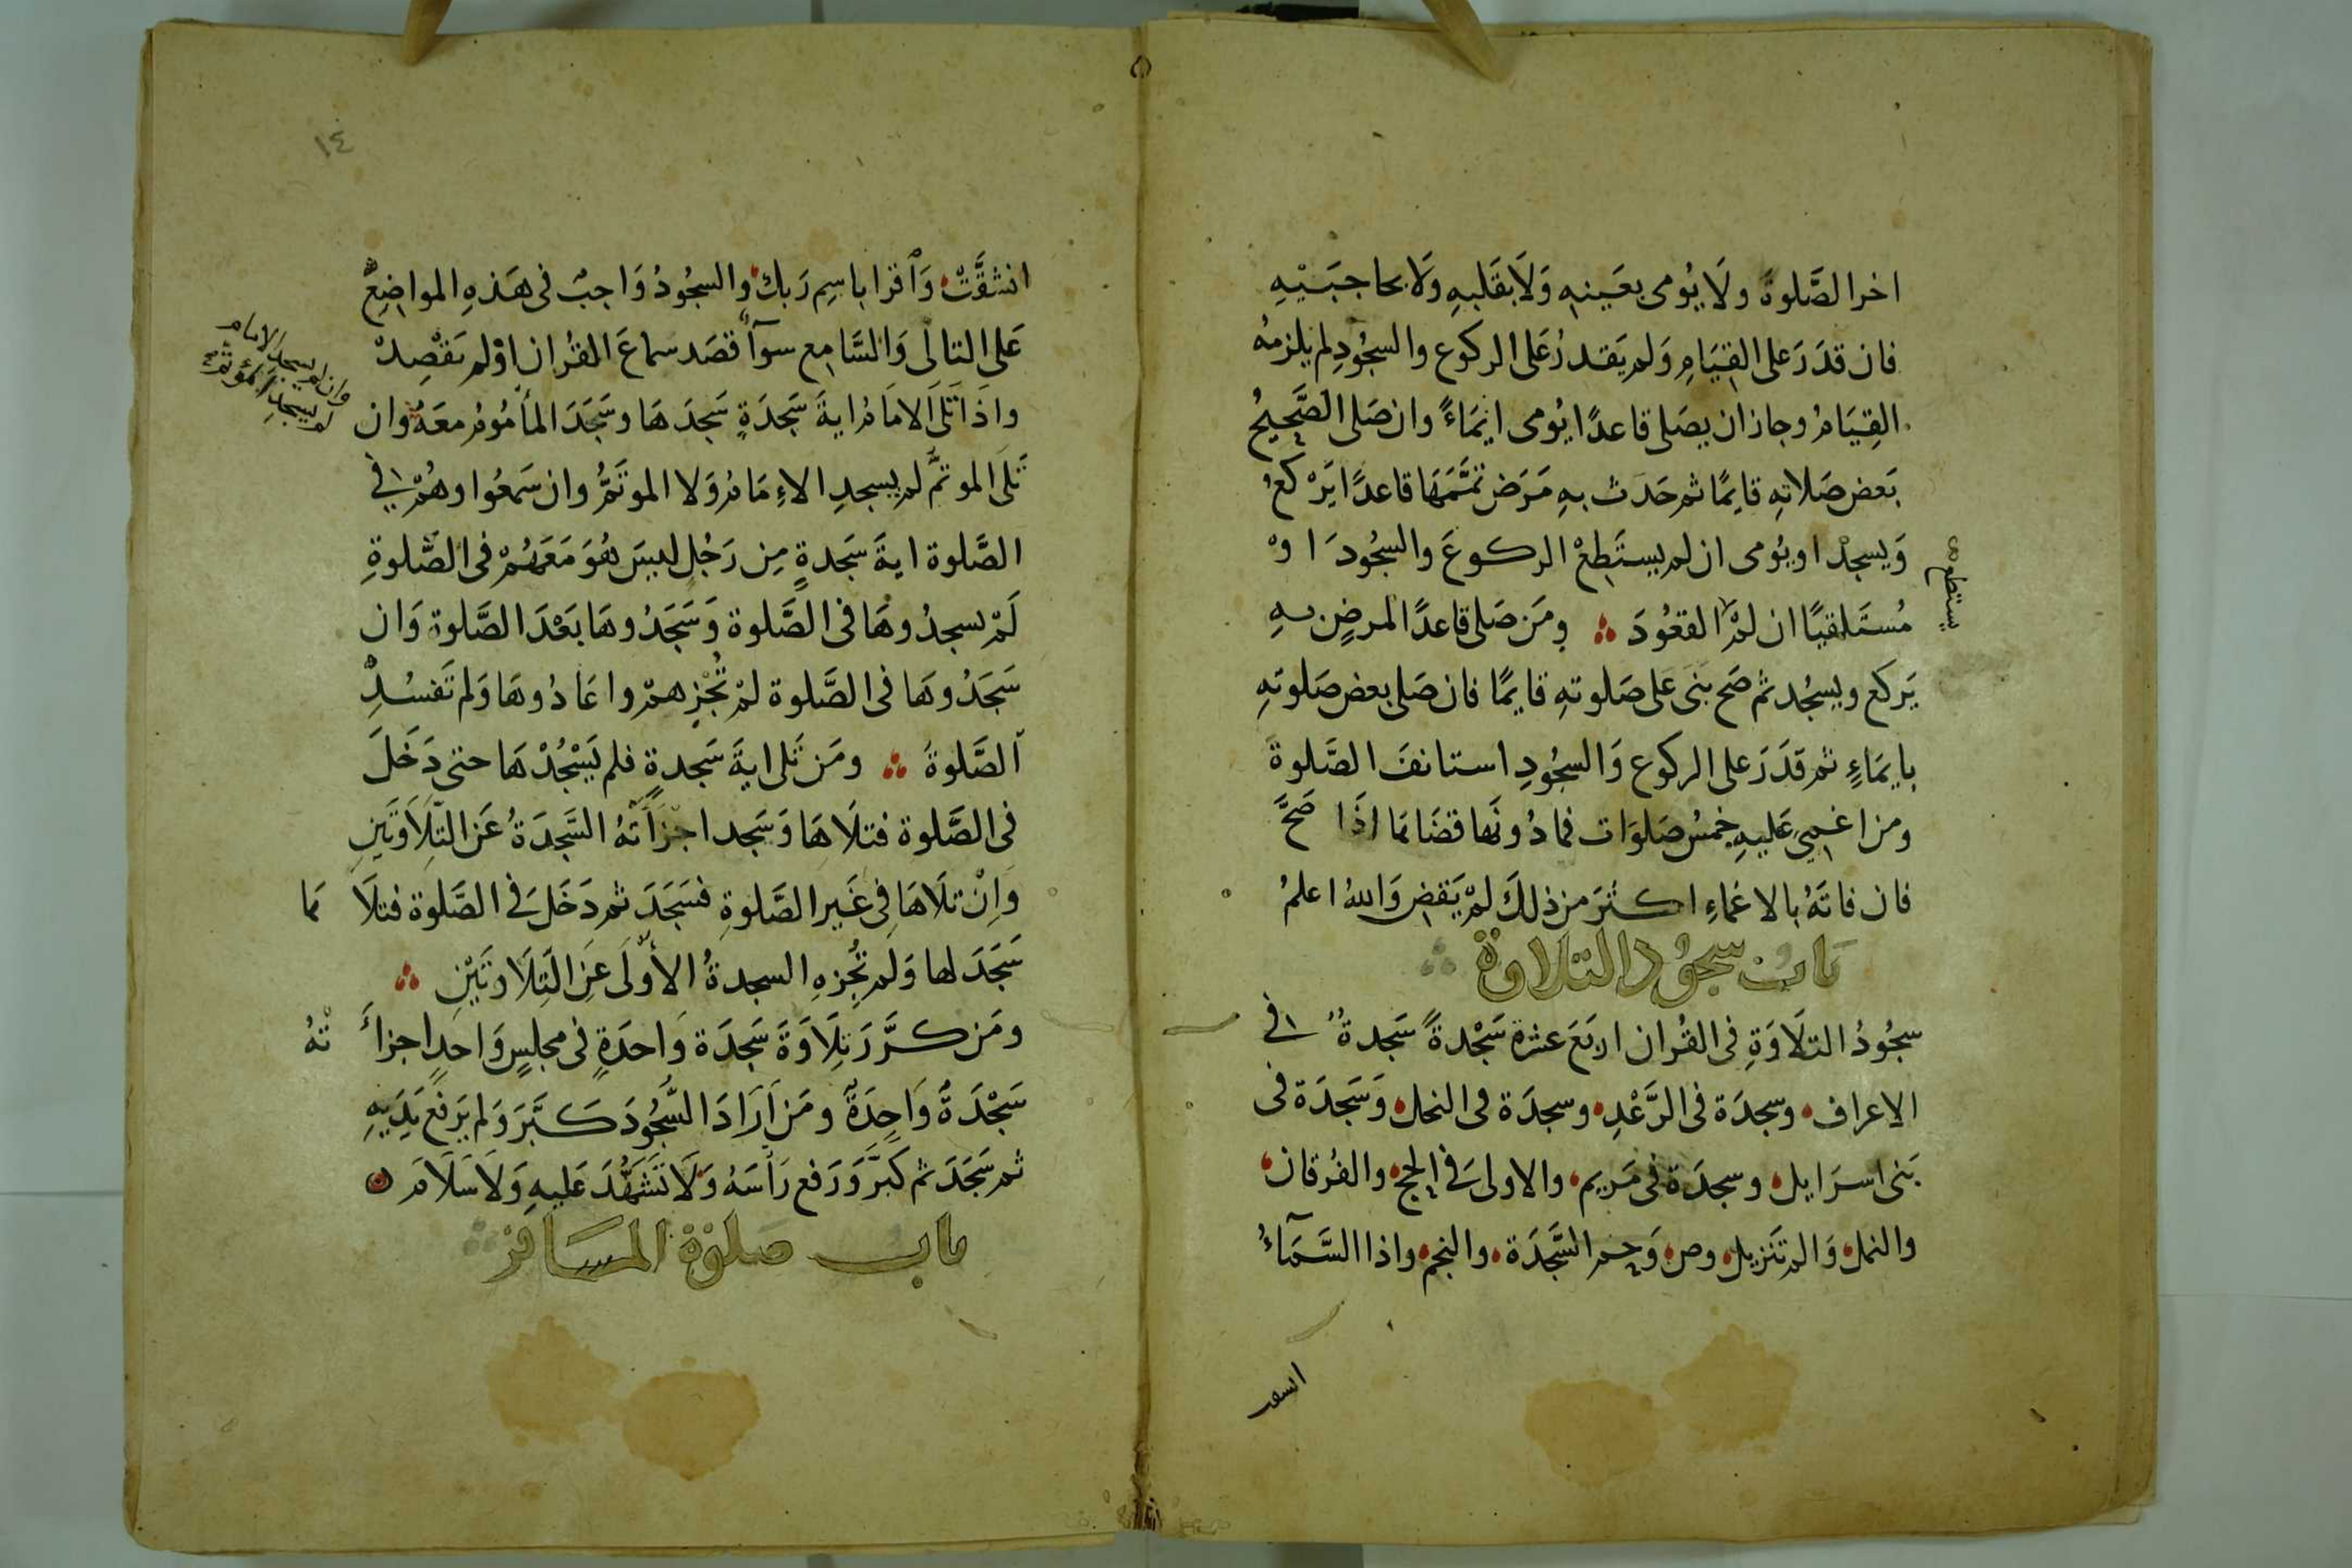 اخر الصَّلوةَ ولَا يُومى بعَينهِ وَلَا بقَلبهِ ولَا بحاجبَيْهِ
فان قدَرَ على القِيَامِ وَلم يَقدرْ عَلى الركوع والسجُودِ لم يلزمهُ
القِيَامُ وجاز ان يصَلى قاعدًا يُومى ايمَاءً وان صَلى الصَّحِيحُ
بَعض صَلاتهِ قايمًا ثم حَدَث بهِ مَرَض تمَّمَهَا قاعدًا يَرْكَعُ
وَيسجدْ او يُومى ان لم يستَطِعْ الركوعَ والسجُودَ اوْ
مُستَلقيًا ان لمْ القعُودَ ومَن صَلى قاعدًا لمرضٍ بهِ
يستطع
يَركع ويسجُد ثم صَح بَنَى عَلى صَلوتهِ قايمًا فان صَلى بعض صَلوتهِ
بايمَاءٍ ثم قدَرَ على الركوع وَالسجُودِ استانفَ الصَّلوةَ
ومن اغمِىَ عَليهِ خمسُ صَلوَات فما دُونَها قضَاهَا اذَا صَحَّ
فان فاتَهُ بالاغماءِ اكثرَ من ذلكَ لمْ يَقضِ وَاللهُ اعلمُ
بَابُ سجُود التلاوة
سجُودُ التلَاوَةِ فى القُران اربَعَ عشرة سَجْدةً سَجدةٌ فى
الاعراف وسجدَة فى الرَّعْدِ وسجدَة فى النحل وَسَجدَة فى
بَنى اسرَايل وسجدَة فى مَريم والاولى فى الحج والفُرقان
والنمل وَالم تَنزيل وص وَحم السَّجدَة والنجم واذا السَّمَآءُ
انشقت
١٤
انشقَّتْ وَاقرا باسِم رَبك والسجُودُ وَاجبٌ فى هَذهِ المواضِعْ
عَلى التالى وَالسَّامِع سوآءً قصَد سماعَ القُران اوْ لم يَقْصِدْ
واذَا تَلَى الامَامُ ايةَ سَجدَةٍ سَجدَهَا وسَجَدَ المأمُومُ معَهُ وان
وان لم يسجد الامام
لم يسجدِ المؤتم
تَلَى الموتمُّ لم يسجدِ الاِمَامُ وَلا الموتَمُّ وان سَمعُوا وهُمْ فى
الصَّلوة ايةَ سَجَدةٍ مِن رَجُلٍ ليسَ هُوَ مَعَهُمْ فى الصَّلوةِ
لَمْ يسجدُوهَا فى الصَّلوة وَسَجَدُوهَا بَعْدَ الصَّلوة وَان
سَجَدُوهَا فى الصَّلوة لمْ تُجْزِهمْ واعَادُوهَا وَلم تَفسُدِ
الصَّلوةَ ومَن تَلى ايةَ سَجدةٍ فلم يَسْجُدْهَا حتى دَخَلَ
فى الصَّلوة فتلَاهَا وَسَجد اجزَأتْهُ السَّجدَةُ عَن التِّلَاوَتَينِ
وَاِنْ تلَاهَا فِى غَيرِ الصَّلوَةِ فسَجَدَ ثم دَخَلَ فى الصَّلوة فتلَاهَا
سَجَدَ لها وَلم تُجزِهِ السجدةُ الأولَى عَنِ التِّلَاوتَيْنِ
ومَن كرَّرَ تِلَاوَةَ سَجدَة وَاحدَةٍ فى مجلسٍ وَاحدٍ اجزأَتْهُ
سَجْدَةٌ وَاحِدَةٌ ومَن اَرَادَ السُّجُودَ كَبَّرَ وَلم يَرفع يَدَيهِ
ثم سَجَدَ ثم كَبَّرَ وَرَفع رَأسَهُ وَلَا تَشَهُّدَ عَليهِ وَلَا سَلَامَ
باب صلوة المسَافر